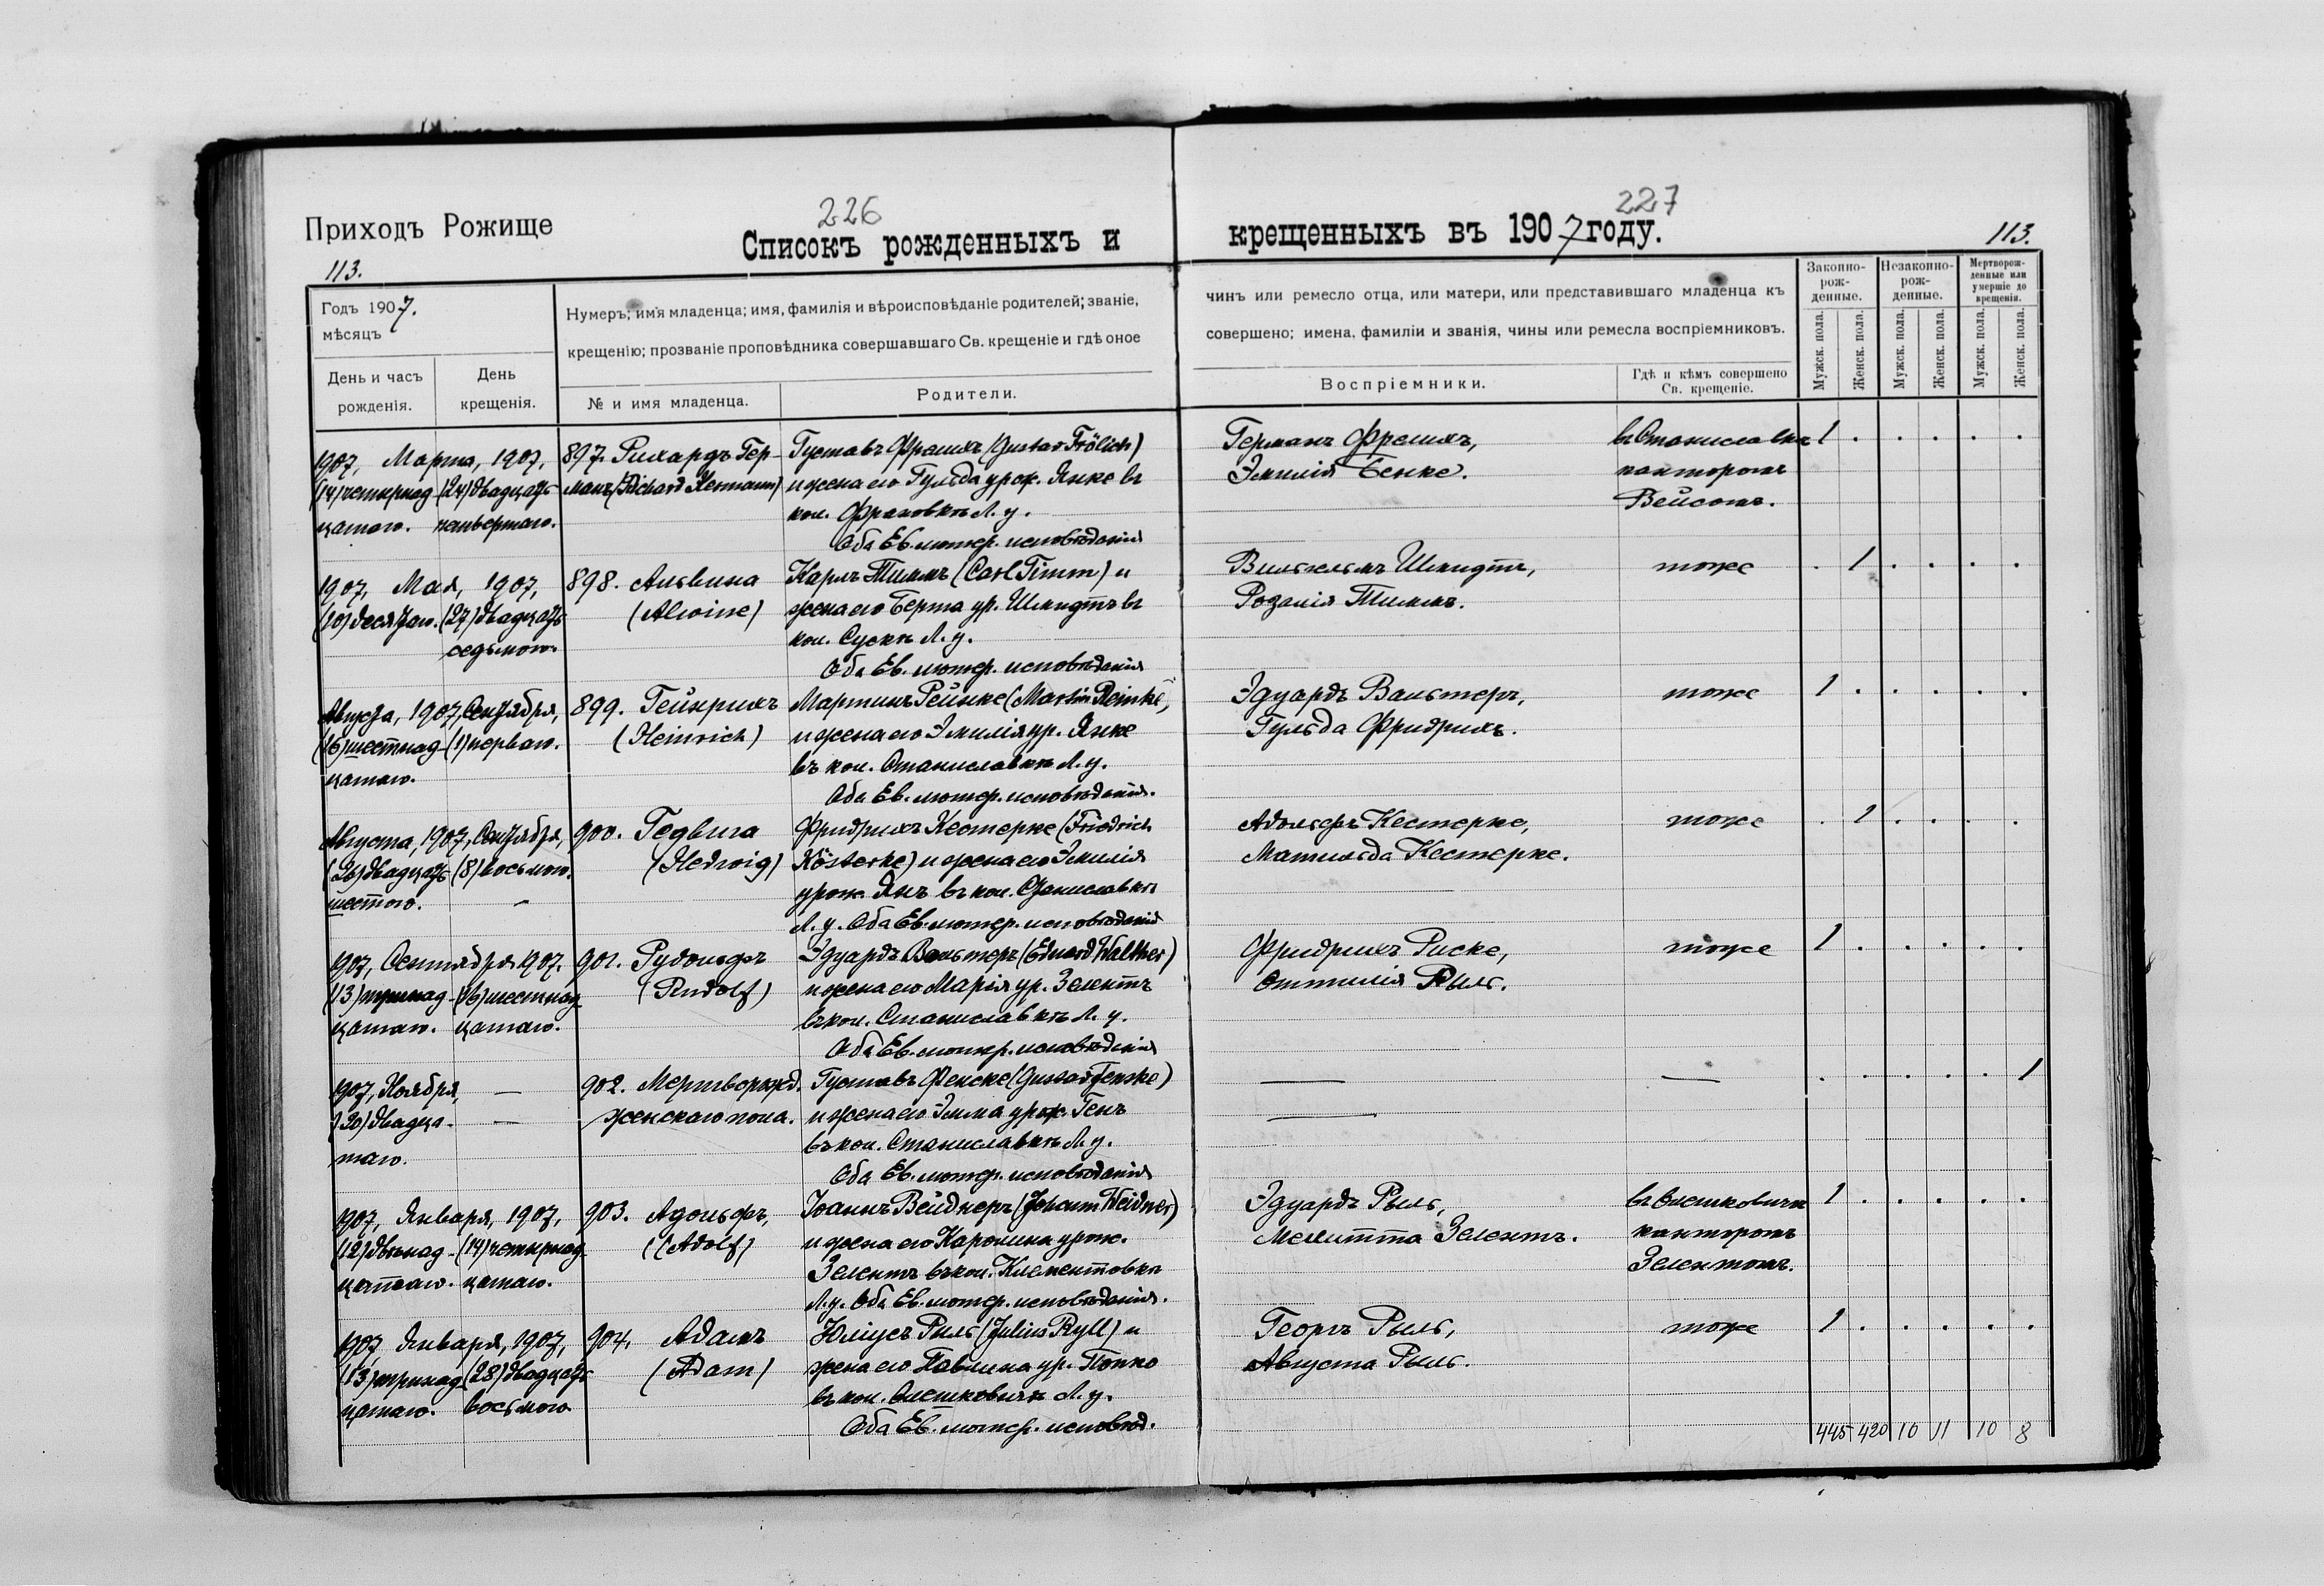 226
227
Приходъ Рожище
Списокъ рожденныхъ и
крещенныхъ въ 1907 году.
113.
113.
Годъ 1907.
мѣсяцъ
День и часъ
рожденія.
День
крещенія.
Нумеръ; имя младенца; имя, фамилія и вѣроисповѣданіе родителей; званіе,
крещенію; прозваніе проповѣдника совершавшаго Св. крещеніе и гдѣ оное
№ и имя младенца.
Родители.
чинъ или ремесло отца, или матери, или представившаго младенца къ
совершено; имена, фамиліи и званія, чины или ремесла воспріемниковъ.
Воспріемники.
Гдѣ и кѣмъ совершено
Св. крещеніе.
Законно-
рож-
денные.
Незаконно-
рож-
денные.
Мертворож-
денные или
умершіе до
крещенія.
Мужск. пола.
Женск. пола.
Мужск. пола.
Женск. пола.
Мужск. пола.
Женск. пола.
1907, Марта, 1907, 897. Рихардъ Гер- Густавъ Фрелихъ (Gustav Frölich) Германъ Фрелихъ, въ Станиславкѣ 1 . . . . .
(14) четырнад- (24) двадцать манъ (Richard Hermann) и жена его Гульда урож. Янке въ Эмилія Бенке. канторомъ
цатаго. четвертаго. кол. Л. у. Вейсомъ.
Оба Ев. лютер. исповѣданія
1907, Мая, 1907, 898. Альвина Карлъ Тиммъ (Carl Timm) и Вильгельмъ Шмидтъ, тоже . 1 . . . .
(10) десятаго. (27) двадцать (Alwine) жена его Берта ур. Шмидтъ въ Розалія Тиммъ.
седьмого. кол. Сускѣ Л. у.
Оба Ев. лютер. исповѣданія
Августа, 1907, Сентября, 899. Гейнрихъ Мартинъ Рейнке (Martin Reinke), Эдуардъ Вальтеръ, тоже 1 . . . . .
(16) шестнад- (1) перваго. (Heinrich) и жена его Эмилія ур. Янке Гульда Фридрихъ.
цатаго. въ кол. Станиславкѣ Л. у.
Оба Ев. лютер. исповѣданія.
Августа, 1907, Сентября, 900. Гедвига Фридрихъ Кестерке (Friedrich Адольфъ Кестерке, тоже . 1 . . . .
(26) двадцать (8) восьмого. (Hedwig) Kösterke) и жена его Эмилія Матильда Кестерке.
шестого. - урож. Янъ въ кол. Станиславкѣ
Л. у. Оба Ев. лютер. исповѣданія
1907, Сентября 1907. 901. Рудольфъ Эдуардъ Вальтеръ (Eduard Walther) Фридрихъ Риске, тоже 1 . . . . .
(13) тринад- (16) шестнад- (Rudolf) и жена его Марія ур. Зелентъ Оттилія Рыль.
цатаго. цатаго. въ кол. Станиславкѣ Л. у.
Оба Ев. лютер. исповѣданія
1907, Ноября, — 902. Мертворожд. Густавъ Фенске (Gustav Fenske) — — . . . . . 1
(20) двадца- — женскаго пола. и жена его Эмма урож. Генъ —
таго. въ кол. Станиславкѣ Л. у.
Оба Ев. лютер. исповѣданія
1907, Января, 1907, 903. Адольфъ, Іоаннъ Вейднеръ (Johann Weidner) Эдуардъ Рыль, въ Олешковичи 1 . . . . .
(12) двѣнад- (14) четырнад- (Adolf) и жена его Каролина урож. Мелитта Зелентъ. канторомъ
цатаго. цатаго. Зелентъ въ кол. Клементовкѣ Зелентомъ.
Л. у. Оба Ев. лютер. исповѣданія.
1907, Января, 1907, 904. Адамъ Юліусъ Рыль (Julius Ryll) и Георгъ Рыль, тоже 1 . . . . .
(13) тринад- (28) двадцать (Adam) жена его Павлина ур. Попко Августа Рыль.
цатаго. восьмого. въ кол. Олешковичи Л. у.
Оба Ев. лютер. исповѣд.
445 420 10 11 10 8